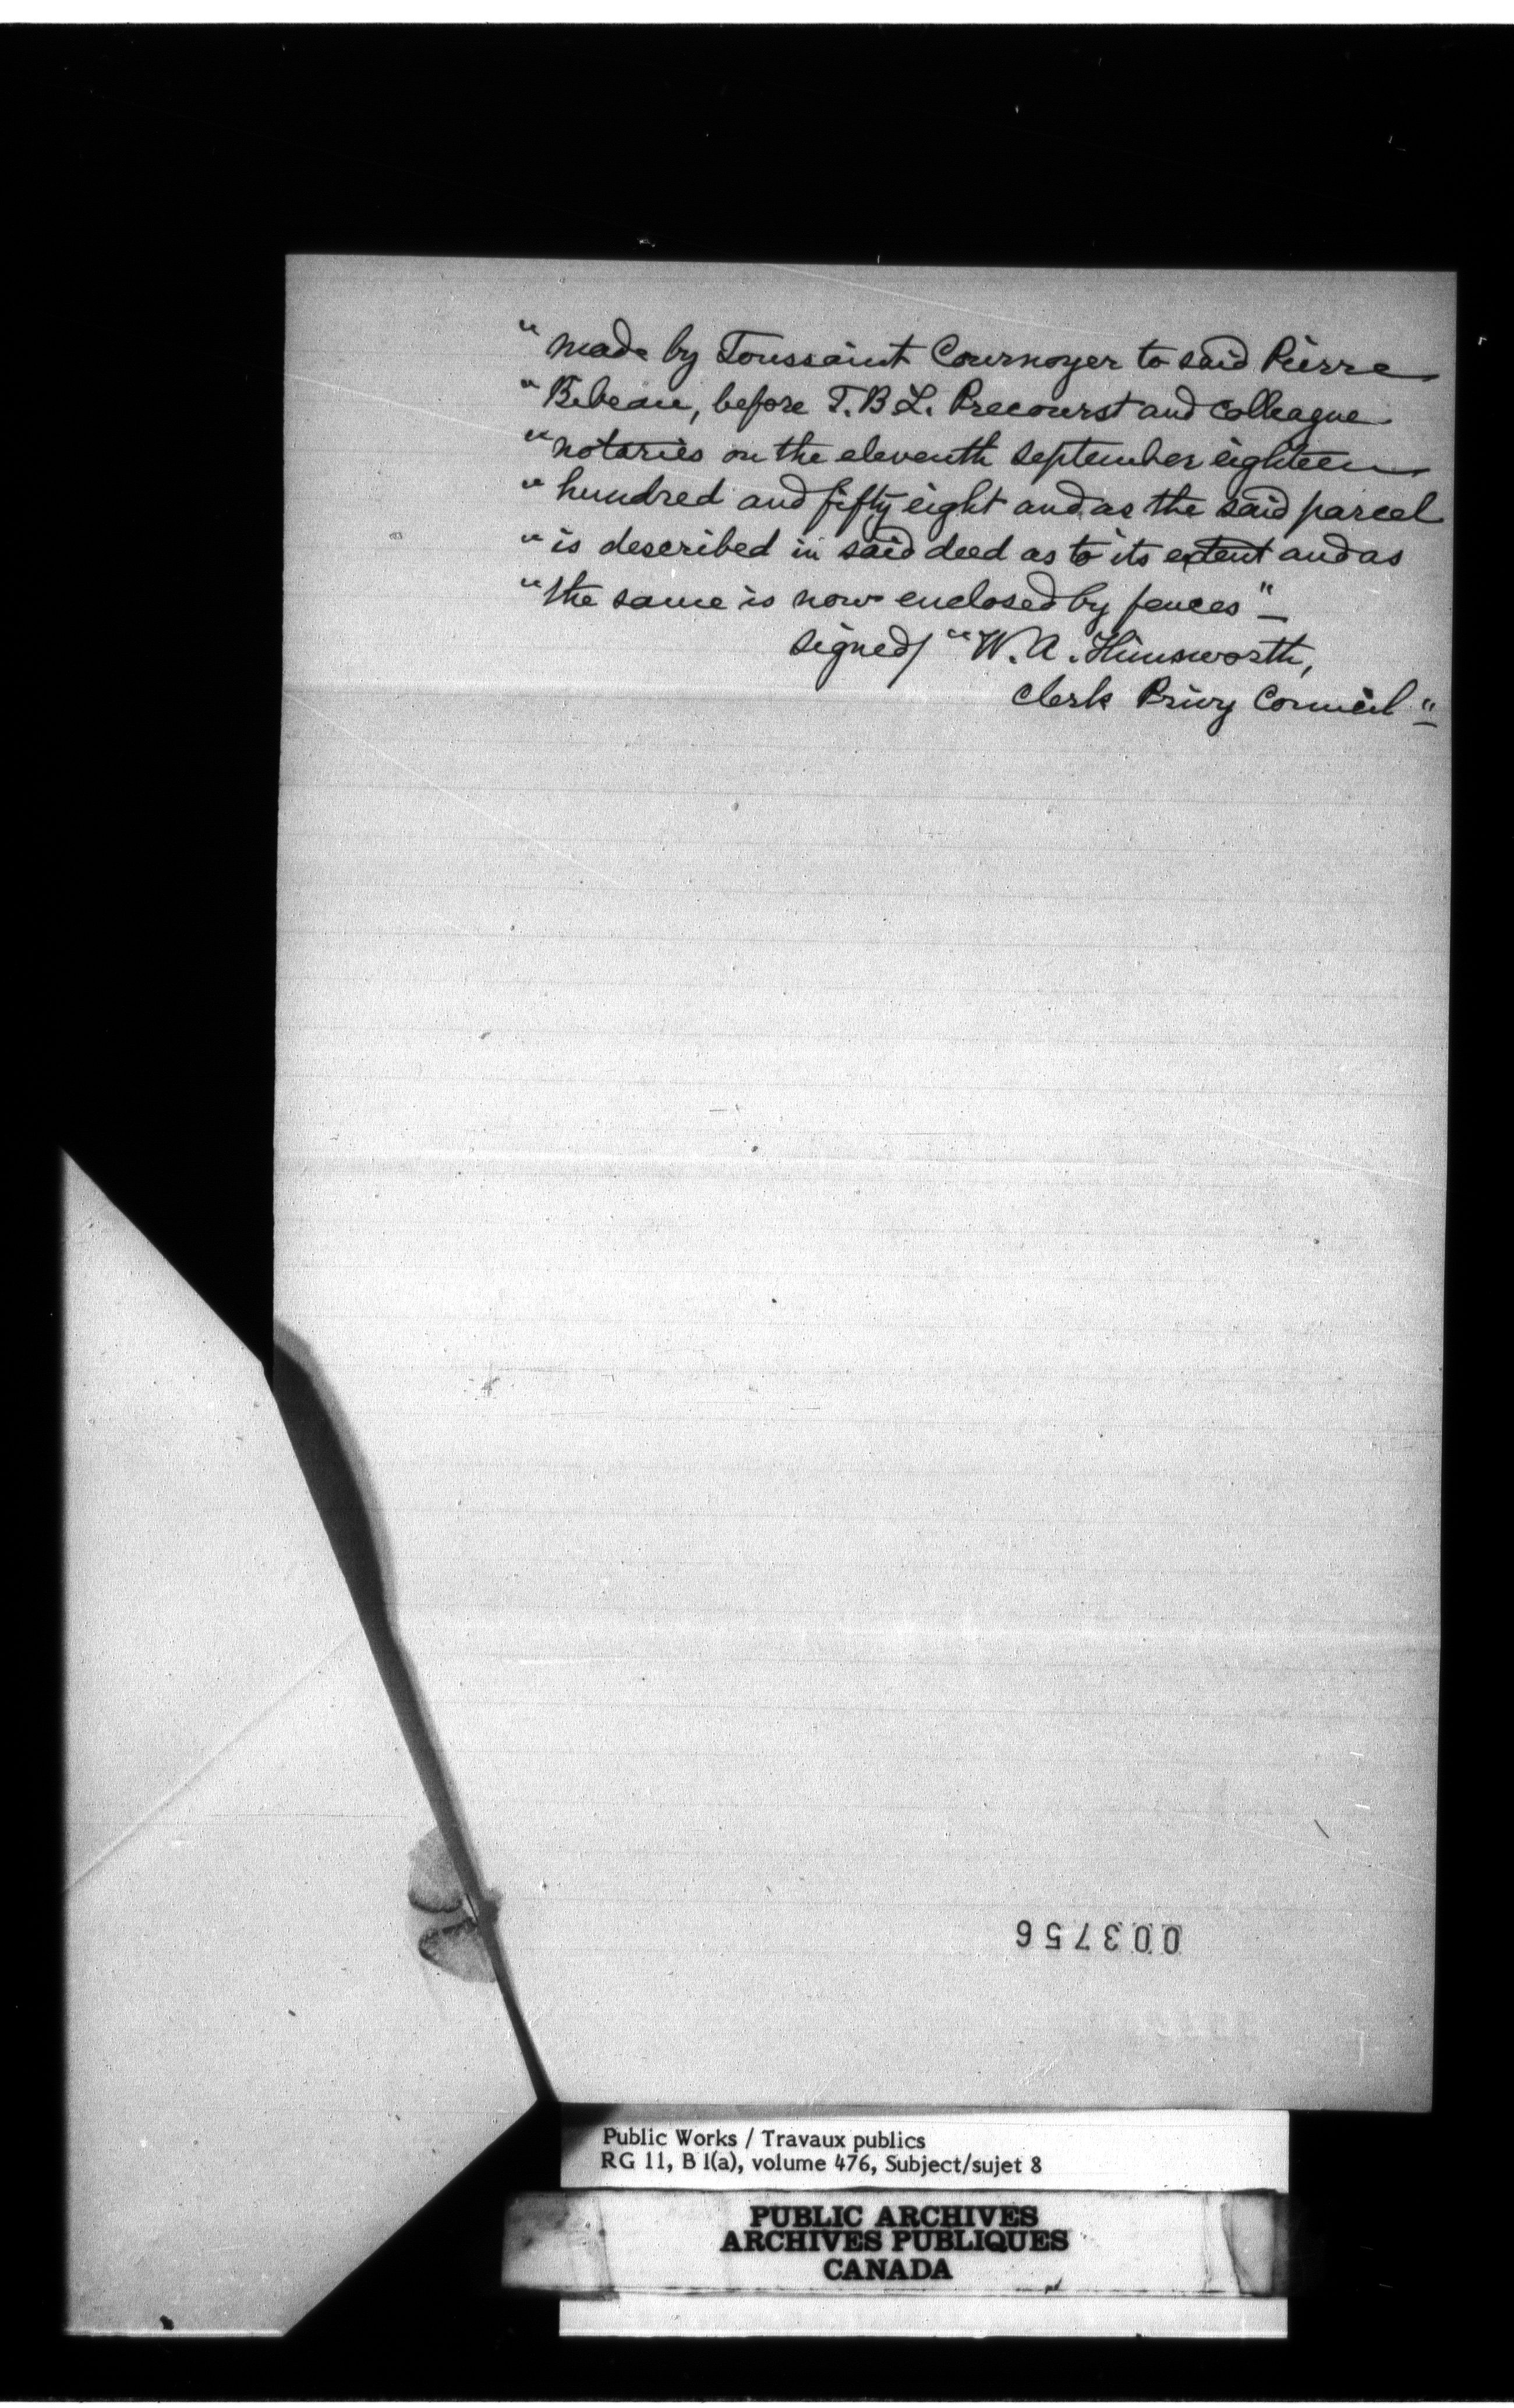 " made by Toussaint Cournoyer to said Pierre
" Bibeau, before T. B L. Precourst and Colleague
" notaries on the eleventh september eighteen
" hundred and fifty eight and as the said parcel
" is described in said deed as to its extent and as
" the same is now enclosed by fences" —
signed/ "W. A. Himsworth,
Clerk Privy Council"
003756
Public Works / Travaux publics
RG 11, B 1(a), volume 476, Subject/sujet 8
PUBLIC ARCHIVES
ARCHIVES PUBLIQUES
CANADA